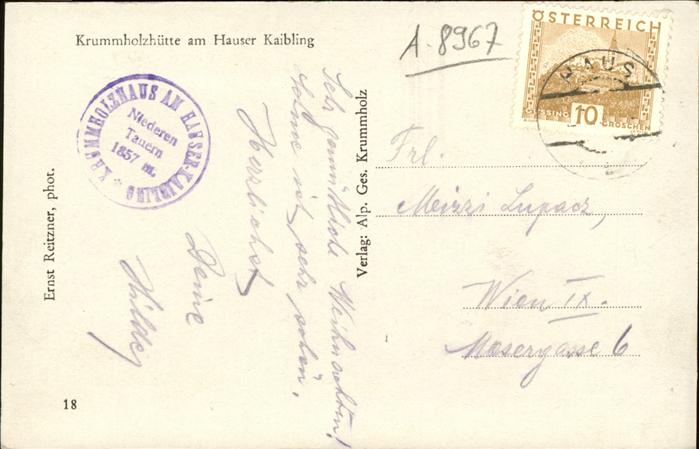 Krummholzhütte am Hauser Kaibling
A. 8967
ÖSTERREICH
10
GROSCHEN
HAUS
KRUMMHOLZHAUS AM HAUSER-KAIBLING
Niederen
Tauern
1857 m.
Sehr gemütliche Weihnachten!
sehr
Herzlichst
Deine
Hilde
Ernst Reitzner, phot.
Verlag: Alp. Ges. Krummholz
Frl.
Meizzi Lupacz,
Wien IX.
Mosergasse 6
18